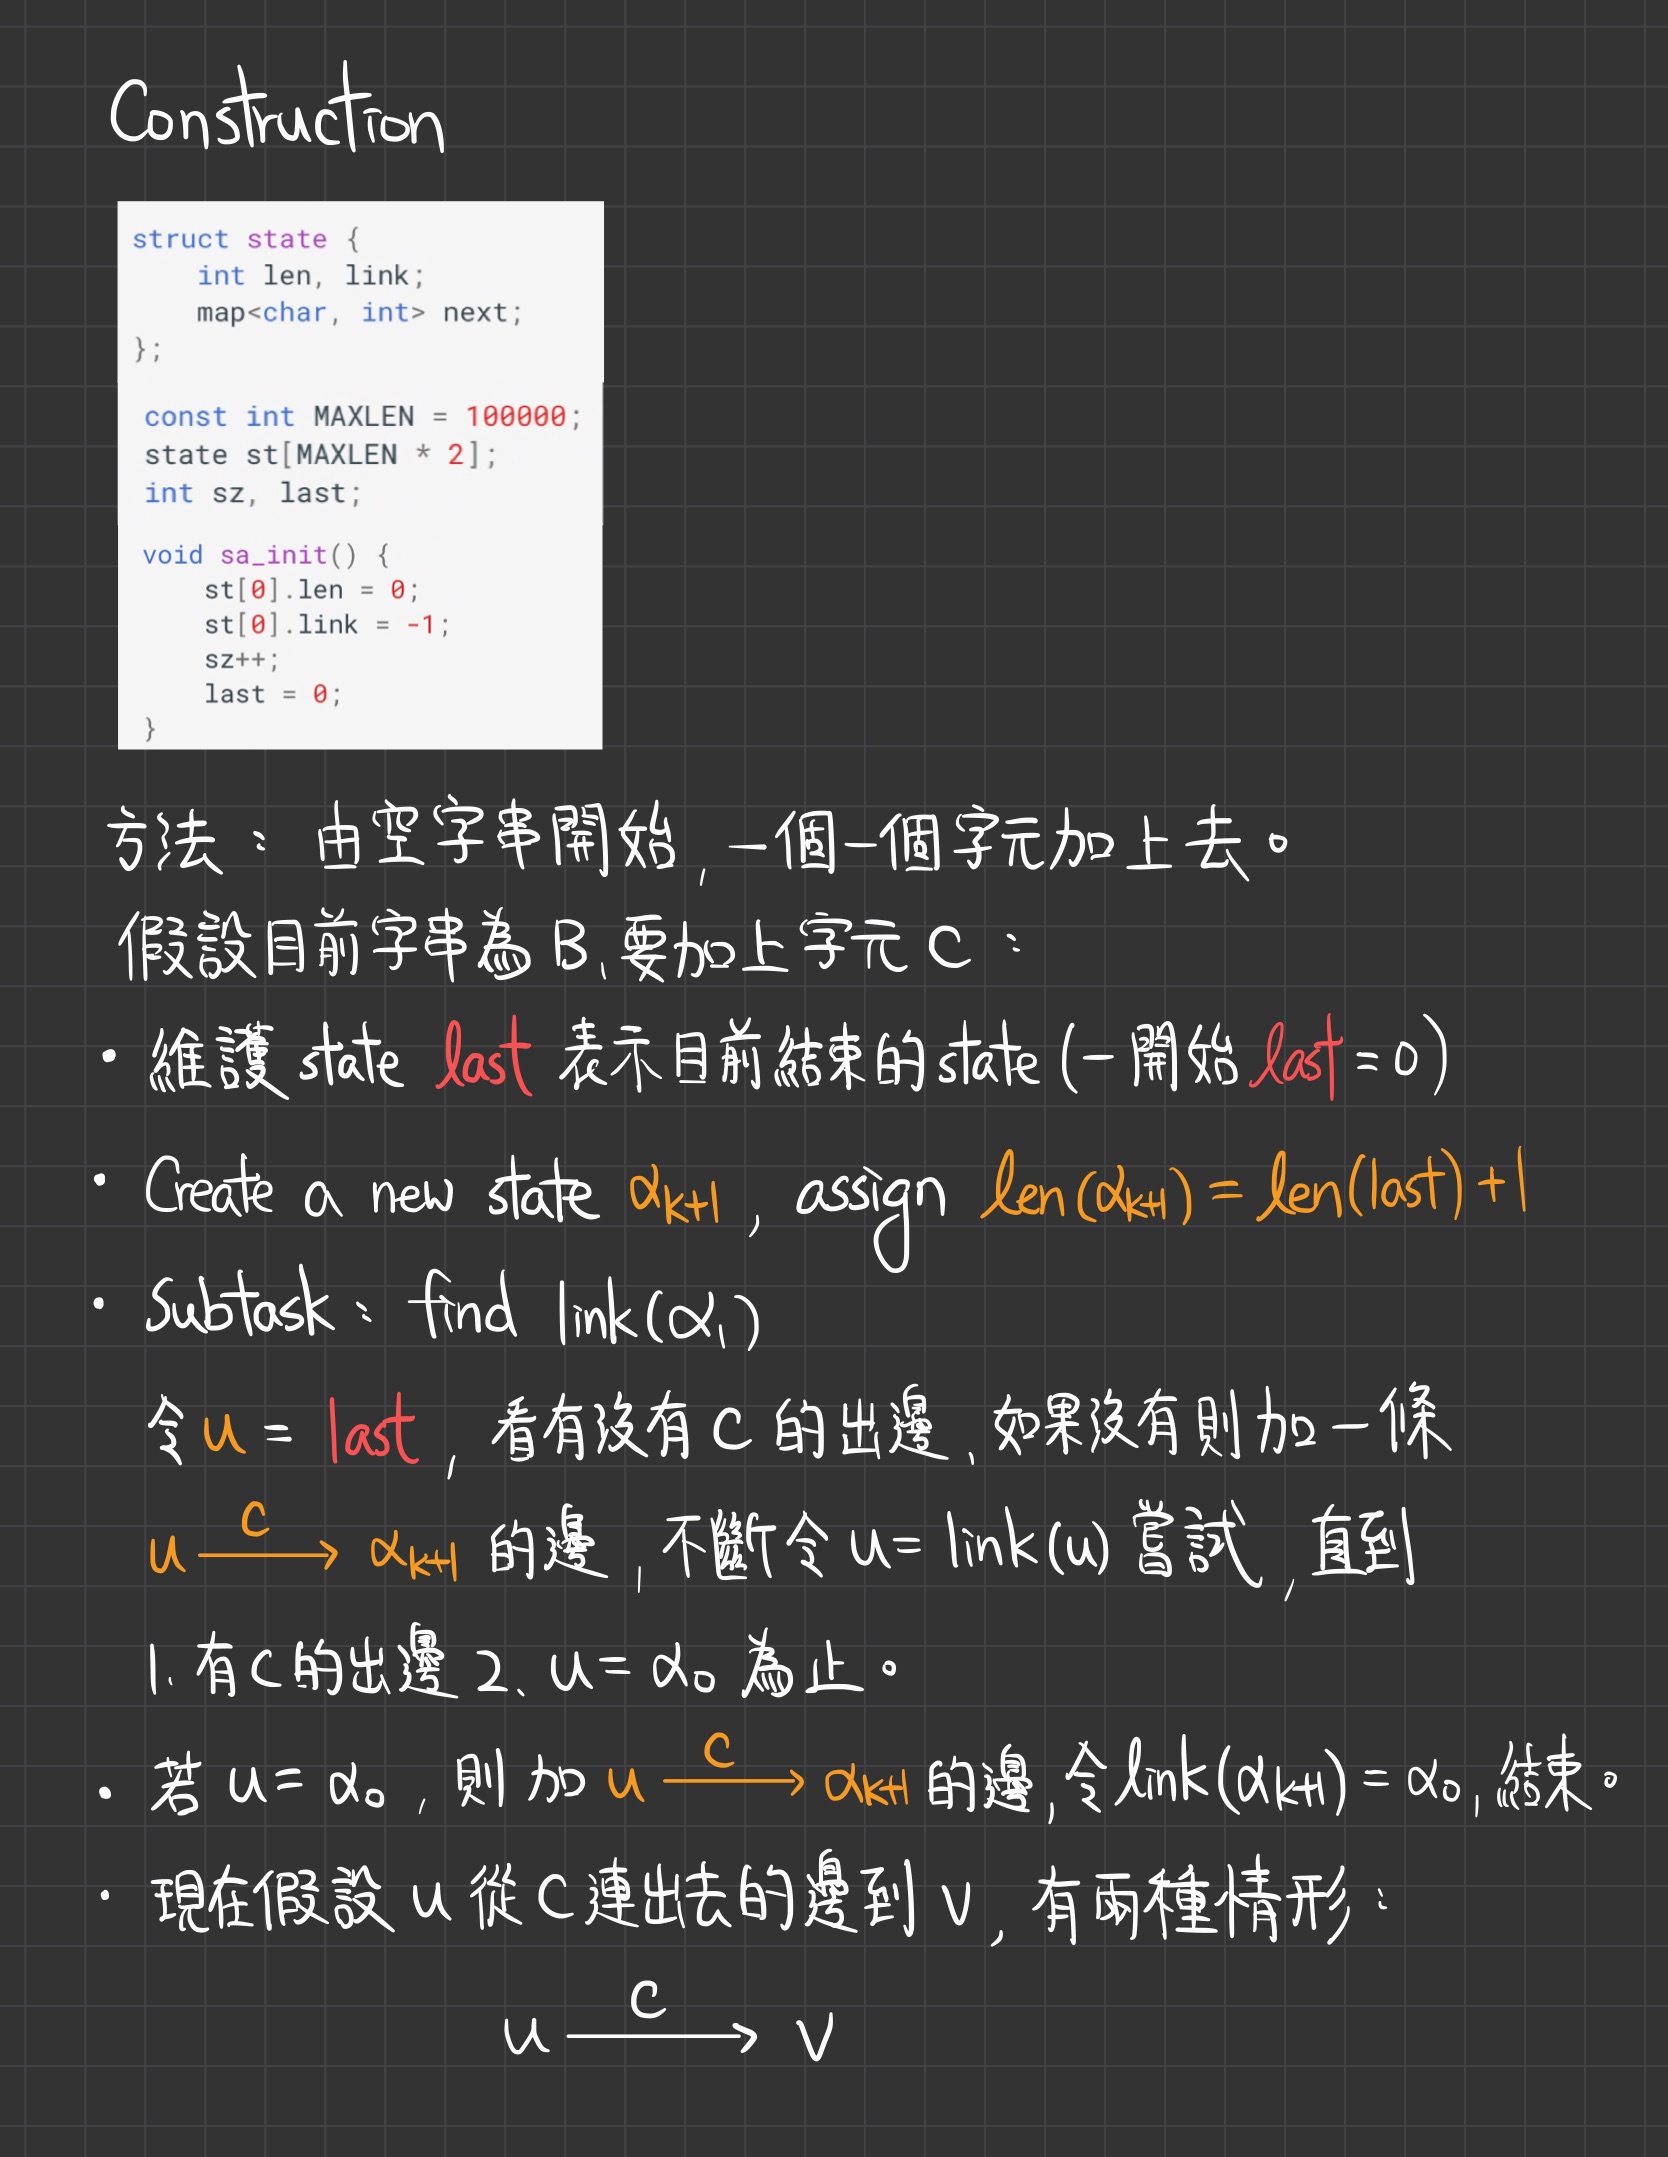 Construction
struct state {
    int len, link;
    map<char, int> next;
};
const int MAXLEN = 100000;
state st[MAXLEN * 2];
int sz, last;
void sa_init() {
    st[0].len = 0;
    st[0].link = -1;
    sz++;
    last = 0;
}
方法：由空字串開始,一個一個字元加上去。
假設目前字串為 B、要加上字元 C：
• 維護 state last 表示目前結束的 state (一開始 last = 0)
• Create a new state αk+1, assign len(αk+1) = len(last) + 1
• Subtask: find link(α1)
令 u = last, 看有沒有 C 的出邊、如果沒有則加一條
u —C→ αk+1 的邊, 不斷令 u = link(u) 嘗試, 直到
1. 有 C 的出邊 2、u = α0 為止。
• 若 u = α0, 則加 u —C→ αk+1 的邊, 令 link(αk+1) = α0, 結束。
• 現在假設 u 從 C 連出去的邊到 v, 有兩種情形：
u —C→ v